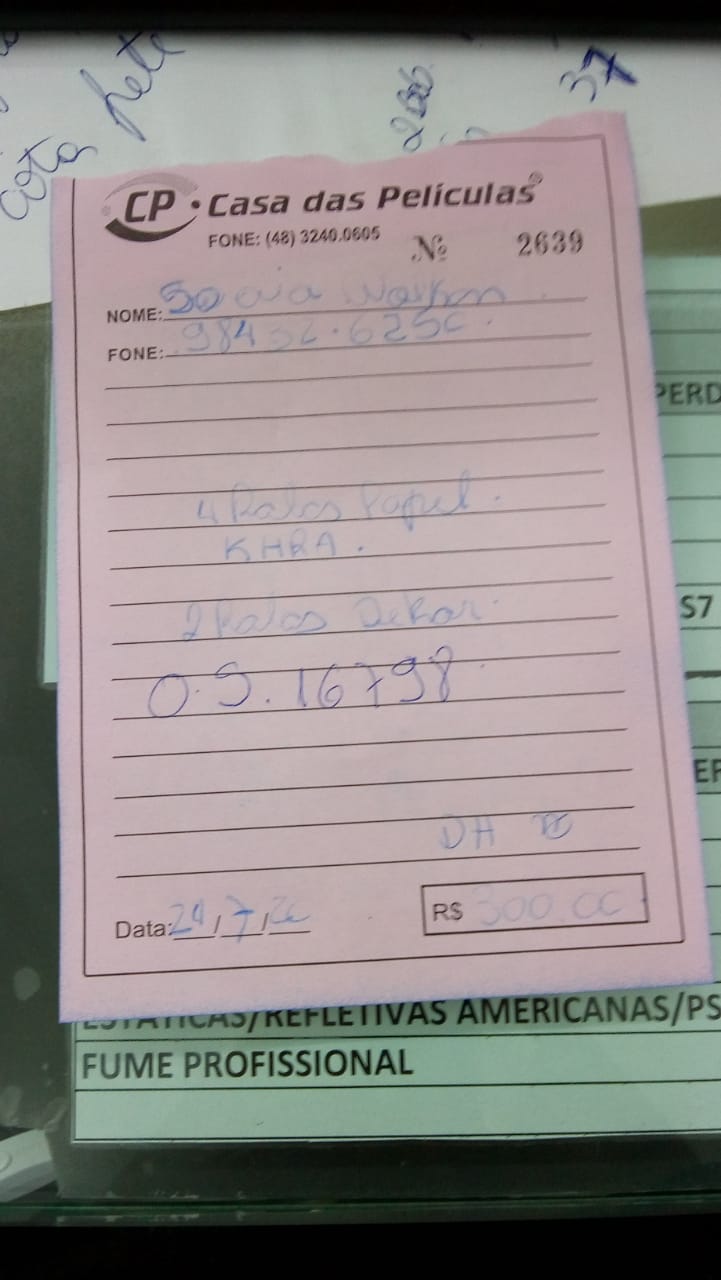 cota
37
CP • Casa das Películas®
FONE: (48) 3240.0605
Nº 2639
NOME:
FONE: 98452.625
4 Rolos Papel.
KHRA.
2 Rolos Dekor.
O.S. 16798
DH
Data: 24/7/20
R$ 300,00
PERD
S7
ESTÁTICAS/REFLETIVAS AMERICANAS/PS
FUME PROFISSIONAL